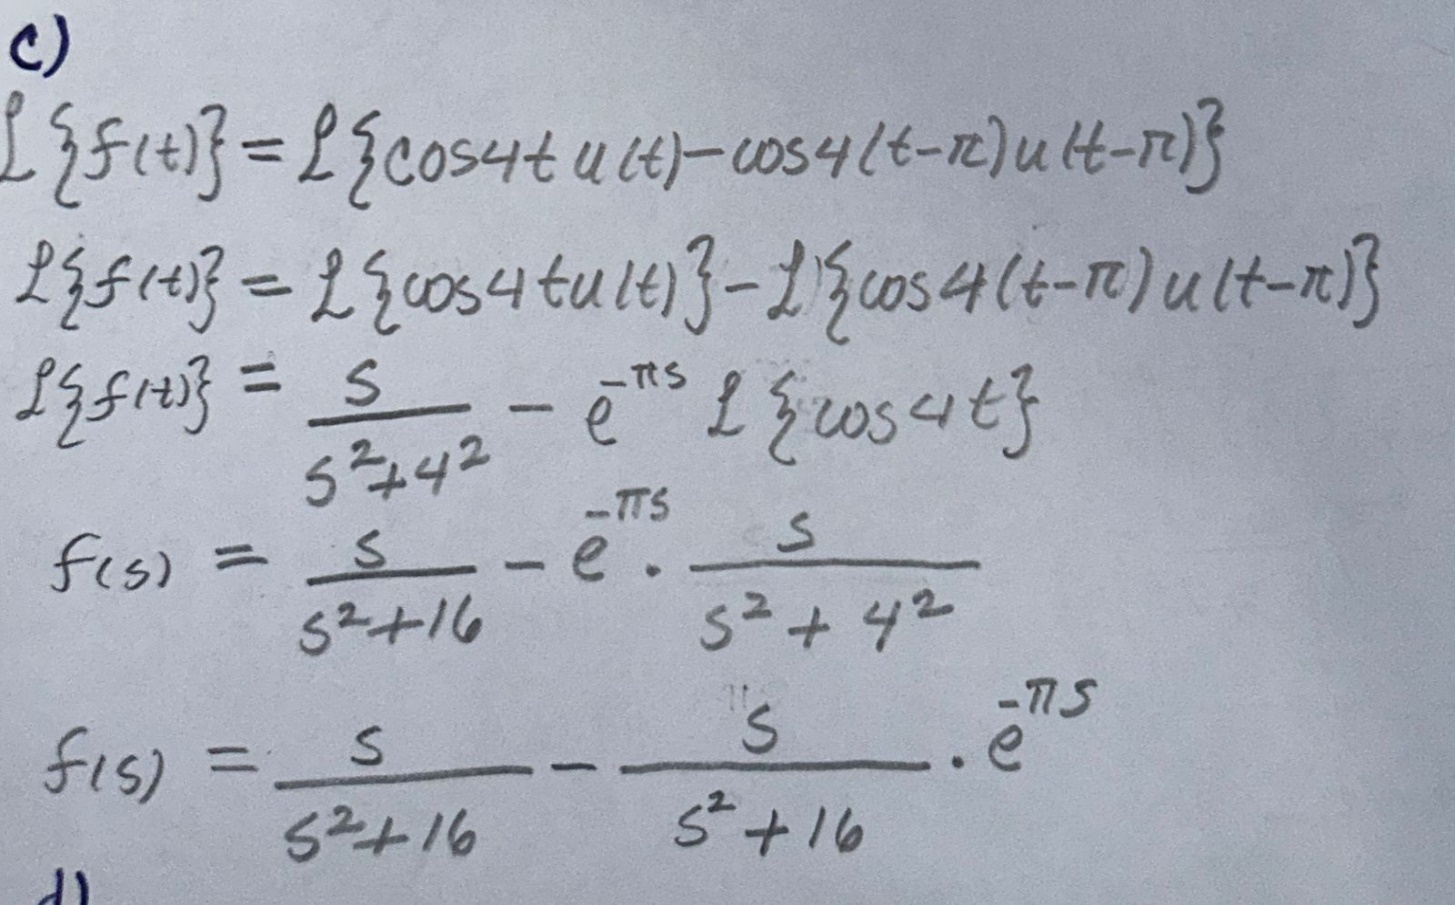 c)
ℒ{f(t)} = ℒ{cos4t u(t) - cos4(t-π)u(t-π)}
ℒ{f(t)} = ℒ{cos4tu(t)} - ℒ{cos4(t-π)u(t-π)}
ℒ{f(t)} = s/(s²+4²) - e^(-πs) ℒ{cos4t}
f(s) = s/(s²+16) - e^(-πs) · s/(s²+4²)
f(s) = s/(s²+16) - s/(s²+16) · e^(-πs)
d)